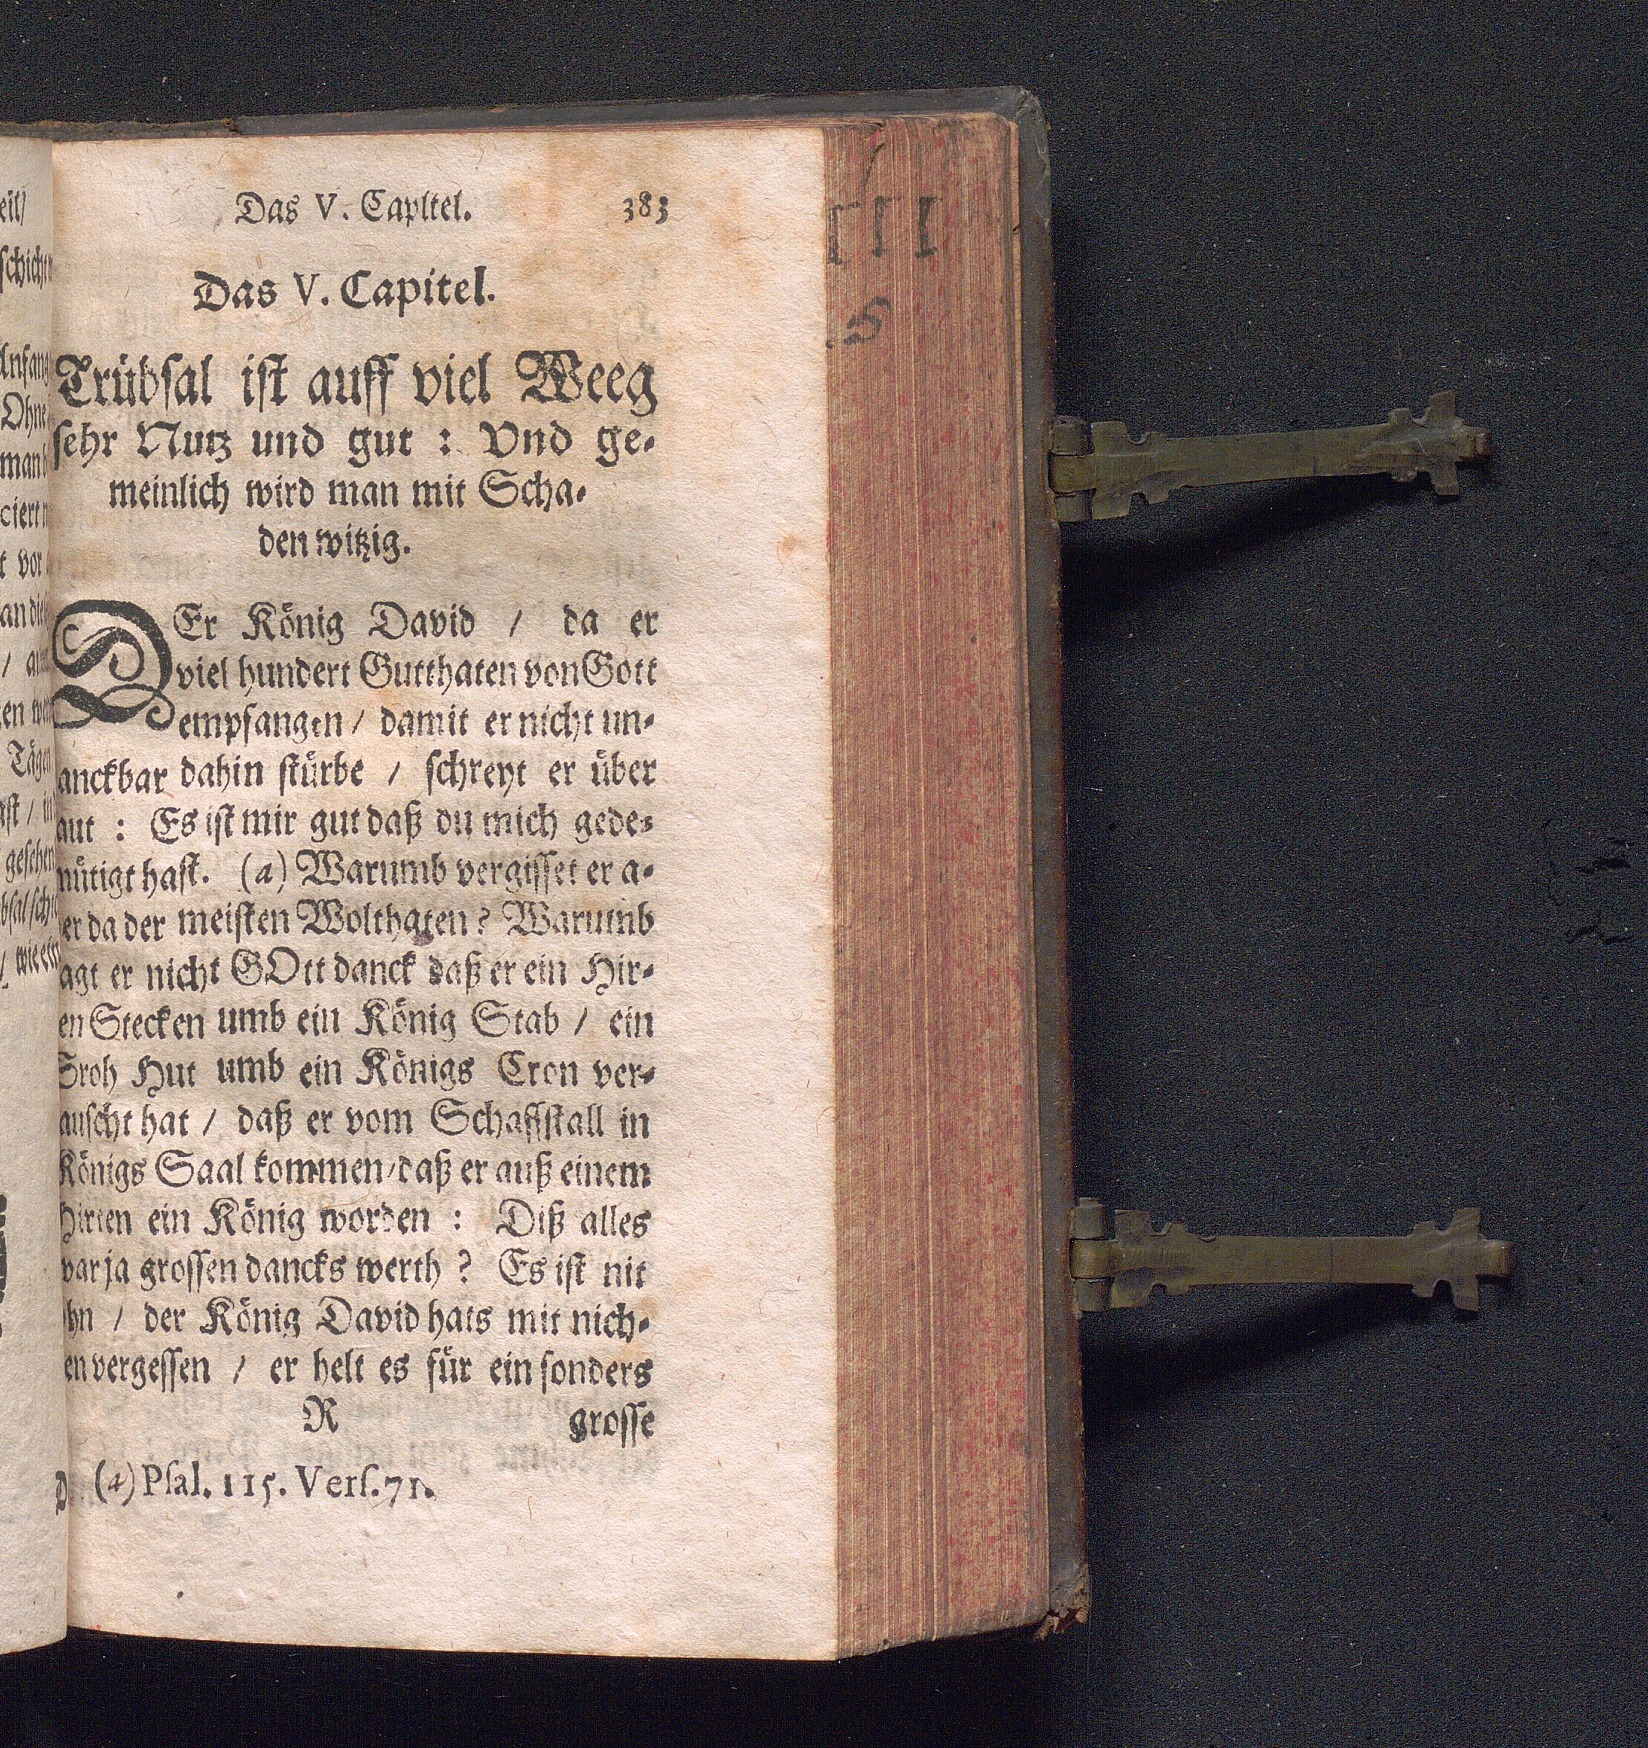 Das V. Capitel. 383
Das V. Capitel.
Trübsal ist auff viel Weeg
sehr Nutz und gut : Vnd ge-
meinlich wird man mit Scha-
den witzig.
DEr König David / da er
viel hundert Gutthaten von Gott
empfangen / damit er nicht un-
anckbar dahin stürbe / schreyt er über
aut : Es ist mir gut daß du mich gede-
mütigt hast. (a) Warumb vergisset er a-
er da der meisten Wolthaten? Warumb
agt er nicht GOtt danck daß er ein Hir-
en Stecken umb ein König Stab / ein
Sroh Hut umb ein Königs Cron ver-
auscht hat / daß er vom Schafstall in
Königs Saal kommen / daß er auß einem
Hirten ein König worden : Diß alles
war ja grossen dancks werth ? Es ist nit
ohn / der König David hats mit nich-
en vergessen / er helt es für ein sonders
R grosse
(a) Psal. 115. Vers. 71.
eil/
schich
Anfang
Ohne
man
ciert
t vor
an die
Tägen
gesehen
/ wie ein
III
S